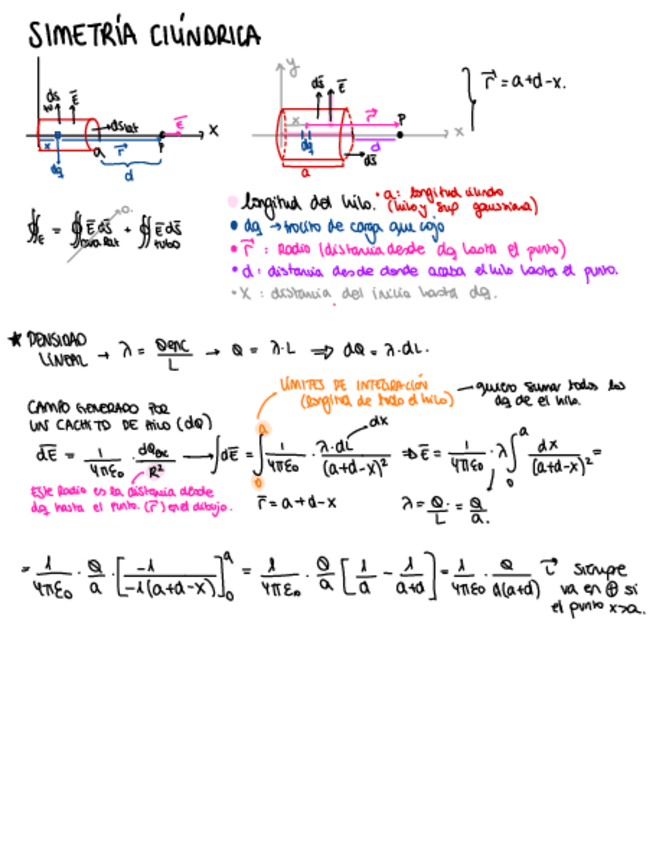 SIMETRÍA CILÍNDRICA
ds E dslat E x
x a r P
dq d
y ds E r P x
x dq d ds
a
r = a+d-x.
∯E = ∯ E ds + ∯ E ds 0.
tubo
longitud del hilo. • a: longitud cilindro
(hilo y sup gaussiana)
• dq → trocito de carga que cojo
• r : Radio (distancia desde dq hasta el punto)
• d: distancia desde donde acaba el hilo hasta el punto.
• X : distancia del inicio hasta dq.
★ DENSIDAD
LINEAL → λ = Qenc/L → Q = λ·L ⇒ dQ = λ·dL.
LÍMITES DE INTEGRACIÓN
(longitud de todo el hilo)
quiero sumar todos los
dq de el hilo.
CAMPO GENERADO POR
UN CACHITO DE HILO (dQ)
dE = 1/4πε0 · dQenc/R² → ∫dE = ∫₀ᵃ 1/4πε0 · λ·dL/(a+d-x)² ⇒ E = 1/4πε0 · λ ∫₀ᵃ dx/(a+d-x)² =
dx
Este Radio es la distancia desde
dq hasta el punto. (r) en el dibujo.
r = a+d-x
λ = Q/L = Q/a.
= 1/4πε0 · Q/a · [-1/-1(a+d-x)]₀ᵃ = 1/4πε0 · Q/a [1/a - 1/a+d] = 1/4πε0 · Q/d(a+d) i siempre
va en ⊕ si
el punto x>a.